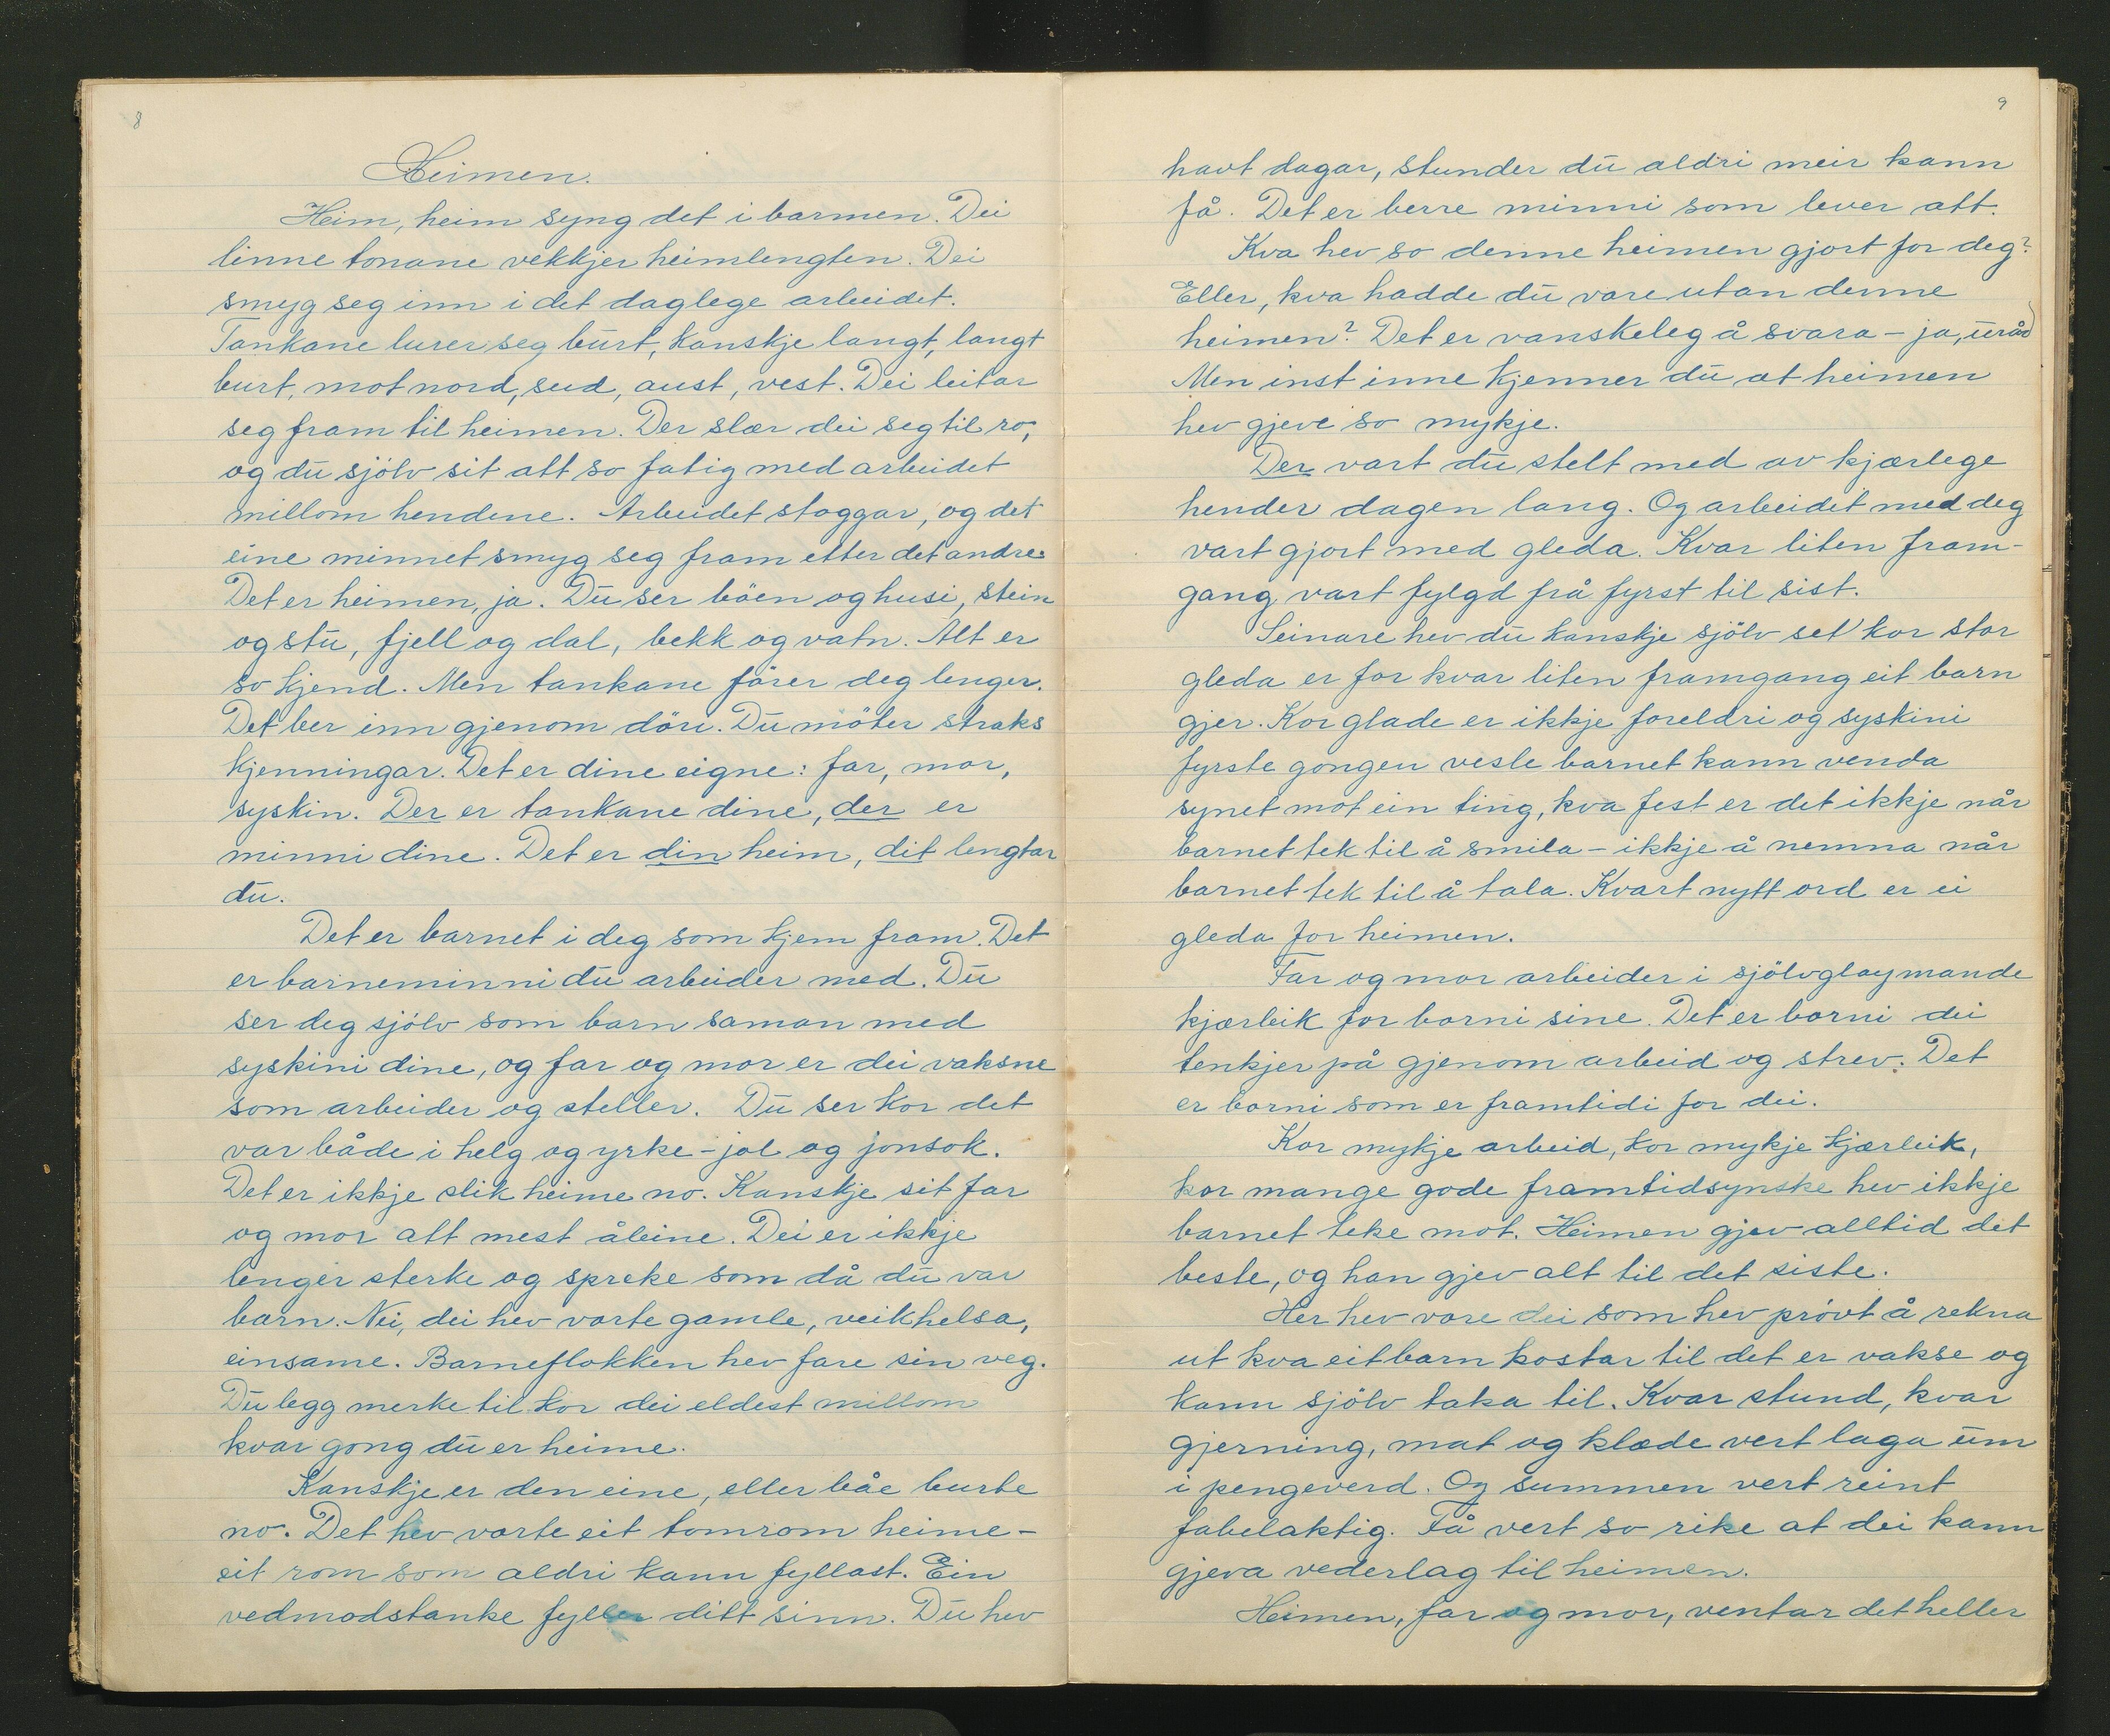 8
Heimen.
Heim, heim syng det i barmen. Dei
linne tonane vekkjer heimlengten. Dei
smyg seg inn i det daglege arbeidet.
Tankane lurer seg burt, kanskje langt, langt
burt, mot nord, sud, aust, vest. Dei leitar
seg fram til heimen. Der slær dei seg til ro,
og du sjölv sit att so fatig med arbeidet
millom hendene. Arbeidet stoggar, og det
eine minnet smyg seg fram etter det andre.
Det er heimen, ja. Du ser böen og husi, stein
og stu, fjell og dal, bekk og vatn. Alt er
so kjend. Men tankane förer deg lenger.
Det ber inn gjenom döri. Du möter straks
kjenningar. Det er dine eigne: far, mor,
syskin. Der er tankane dine, der er
minni dine. Det er din heim, dit lengtar
du.
Det er barnet i deg som kjem fram. Det
er barneminni du arbeider med. Du
ser deg sjölv som barn saman med
syskini dine, og far og mor er dei vaksne
som arbeider og steller. Du ser kor det
var både i helg og yrke - jol og jonsok.
Det er ikkje slik heime no. Kanskje sit far
og mor att mest åleine. Dei er ikkje
lenger sterke og spreke som då du var
barn. Nei, dei hev vorte gamle, veikhelsa,
einsame. Barneflokken hev fare sin veg.
Du legg merke til kor dei eldest millom
kvar gong du er heime.
Kanskje er den eine, eller båe burte
no. Det hev vorte eit tomrom heime -
eit rom som aldri kann fyllast. Ein
vedmodstanke fyller ditt sinn. Du hev
9
havt dagar, stunder du aldri meir kann
få. Det er berre minni som lever att.
Kva hev so denne heimen gjort for deg?
Eller, kva hadde du vore utan denne
heimen? Det er vanskeleg å svara - ja, uråd
Men inst inne kjenner du at heimen
hev gjeve so mykje.
Der vart du stelt med av kjærlege
hender dagen lang. Og arbeidet med deg
vart gjort med gleda. Kvar liten fram-
gang vart fylgd frå fyrst til sist.
Seinare hev du kanskje sjölv set kor stor
gleda er for kvar liten framgang eit barn
gjer. Kor glade er ikkje foreldri og syskini
fyrste gongen vesle barnet kann venda
synet mot ein ting, kva fest er det ikkje når
barnet tek til å smila - ikkje å nemna når
barnet tek til å tala. Kvart nytt ord er ei
gleda for heimen.
Far og mor arbeider i sjölvgløymande
kjærleik for borni sine. Det er borni dei
tenkjer på gjenom arbeid og strev. Det
er borni som er framtidi for dei.
Kor mykje arbeid, kor mykje kjærleik,
kor mange gode framtidsynske hev ikkje
barnet teke mot. Heimen gjev alltid det
beste, og han gjev alt til det siste.
Her hev vore dei som hev prövt å rekna
ut kva eit barn kostar til det er vakse og
kann sjölv taka til. Kvar stund, kvar
gjerning, mat og klæde vert laga um
i pengeverd. Og summen vert reint
fabelaktig. Få vert so rike at dei kann
gjeva vederlag til heimen.
Heimen, far og mor, ventar det heller